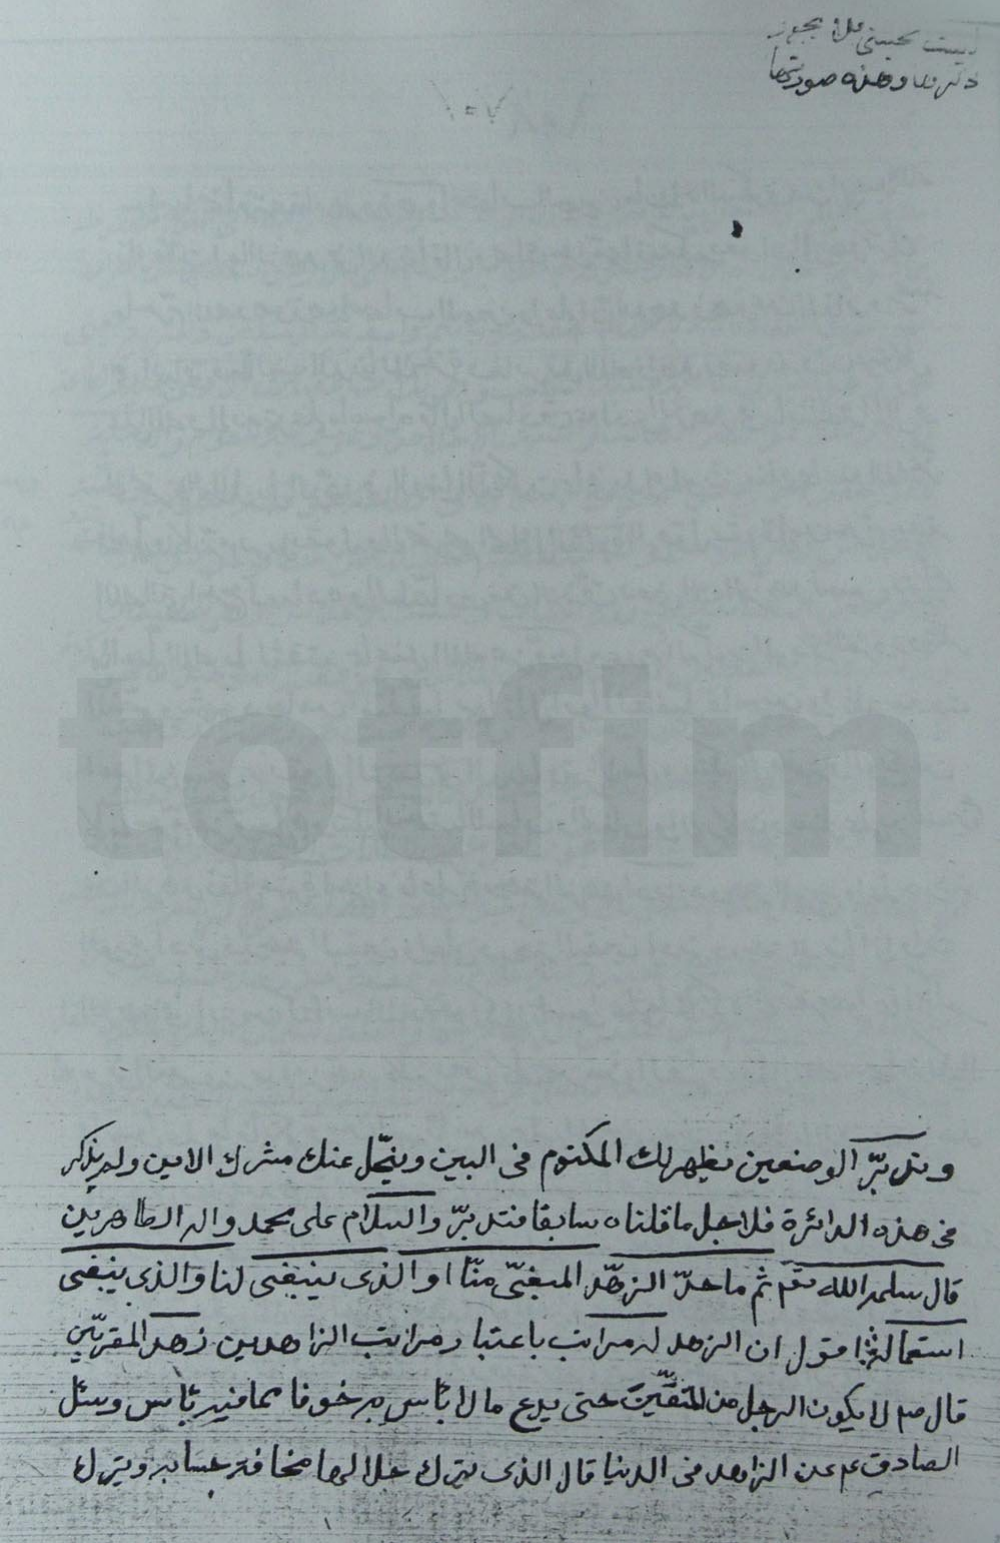 ليست بحيث يجوز
ذكرها وهذه صورتها
totfim
وتدبّر الوصفين يظهر لك المكتوم فى البين وينحّل عنك مشرك الامين ولم يذكر
فى هذه الدائرة فلاجل ما قلناه سابقا فتدبّر والسلام على محمد واله الطاهرين
قال سلمه الله تعم ثم ما حدّ الزهّد المبغىّ منّا او الذى ينبغى لنا والذى ينبغى
استعماله ثمّ اقول ان الزهد له مراتب باعتبار مراتب الزاهدين زهد المقربّين
قال صم لا يكون الرجل من المتقّين حتى يدع ما لا بأس به خوفا مما فيه بأس وسئل
الصادق عم عن الزاهد فى الدنيا قال الذى يترك حلالها مخافة حسابه ويترك